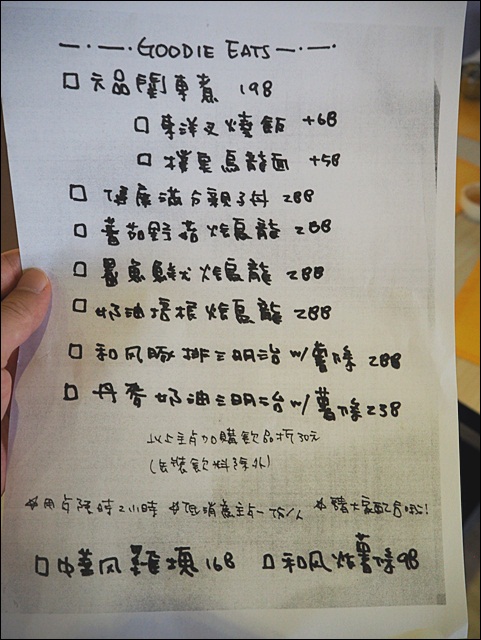 GOODIE EATS
□ 元品關東煮 198
□ 東洋叉燒飯 +68
□ 烏龍麵 +58
□ 健康滿分親子丼 288
□ 蕃茄野菇炒烏龍 288
□ 炒烏龍 288
□ 奶油培根炒烏龍 288
□ 和風豚排三明治 w/ 薯條 288
□ 丹麥奶油三明治 w/ 薯條 238
以上主餐加購飲品折30元
(包裝飲料除外)
用餐限時2小時 低消為主餐一份/人
□ 中華風雞塊 168 □ 和風炸薯條 98